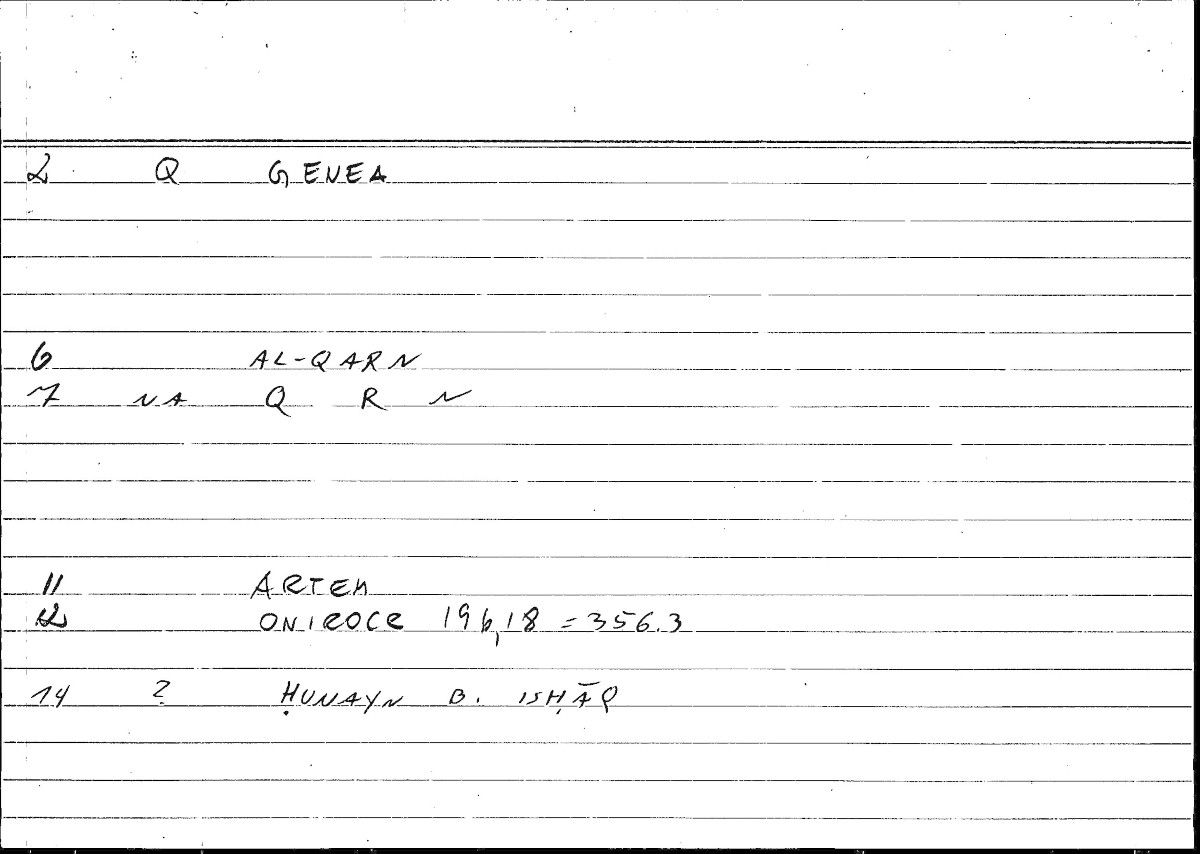 2 Q GENEA
6 AL-QARN
7 NA Q R N
11 ARTEM
12 ONIROCR 196,18 = 356.3
14 ? ḤUNAYN B. ISḤĀQ